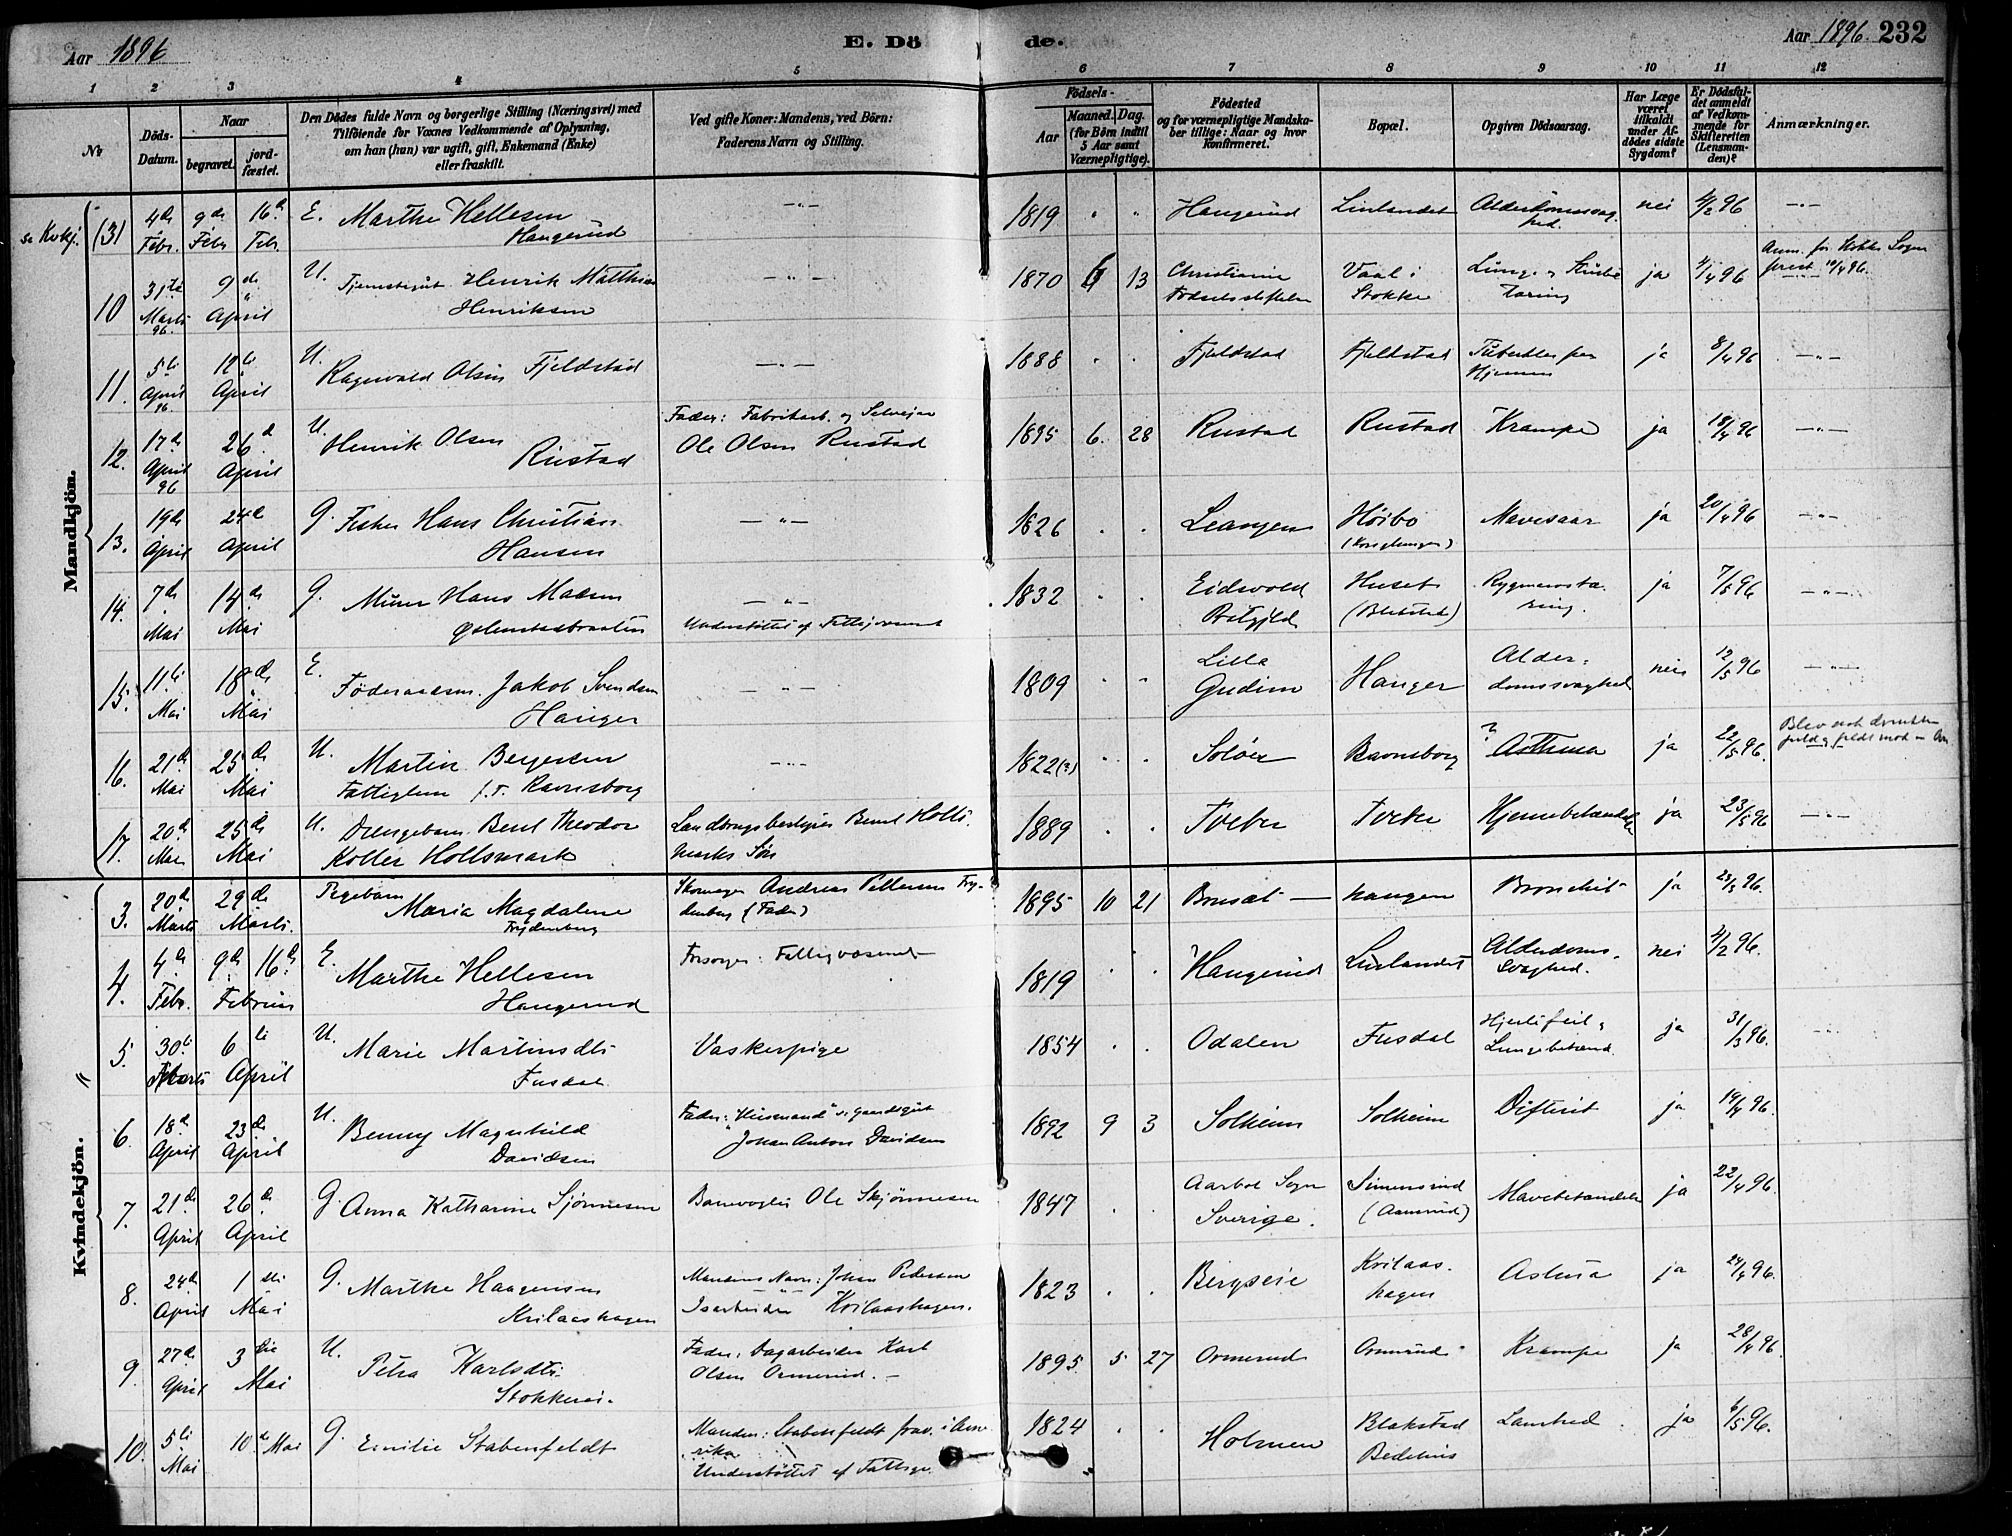 Aar 1896
E. Dö
de.
Aar 1896. 232
1 2 3 4 5 6 7 8 9 10 11 12
No
Döds-
Datum.
Naar
begravet.
jord-
fæstet.
Den Dödes fulde Navn og borgerlige Stilling (Næringsvei) med
Tilföiende for Voxnes Vedkommende af Oplysning,
om han (hun) var ugift, gift, Enkemand (Enke)
eller fraskilt.
Ved gifte Koner: Mandens, ved Börn:
Faderens Navn og Stilling.
Födsels-
Aar
Maaned. Dag.
(for Börn indtil
5 Aar samt
Værnepligtige).
Födested
og for værnepligtige Mandska-
ber tillige: Naar og hvor
konfirmeret.
Bopæl.
Opgiven Dödsaarsag.
Har Læge
været
tilkaldt
under Af-
dödes sidste
Sygdom?
Er Dödsfal-
det anmeldt
af Vedkom-
mende for
Skifteretten
(Lensman-
den)?
Anmærkninger.
Mandkjön.
se Kvkj. (3) 4de Febr. 9de Febr 16de Febr. E. Marthe Hellesen Haugerud —"— 1819 " " Haugerud Linlandet Alderdomssvag-hed. nei 4/2 96 —"—
10 31te Marts 96. 9de April U. Tjenestegut Henrik Matthias Henriksen —"— 1870 6 13 Christiania Födselsstiftelse Vaal i Stokke Lunge- & Strube tæring ja 4/4 96
11. 5te April 96. 12te April U. Ragnvald Olsen Fjeldstad —"— 1888 " " Fjeldstad Fjeldstad Tuberkler paa Hjernen ja 8/4 96 —"—
12. 17de April 96 26de April U. Henrik Olsen Rustad Fader: Fabrikarb. og Selveier Ole Olsen Rustad 1895 6. 28 Rustad Rustad Krampe ja 18/4 96 —"—
13. 19de April 24de April G. Fisker Hans Christian Hansen —"— 1826 . . Leangen Höibo Mavesaar ja 20/4 96 —"—
14. 7de Mai 14de Mai G. Murer Hans Madsen —"— Understöttet af Fattigvæsenet 1832 . . Eidsvold Huset Rygmarvstæ-ring. ja 7/5 96 —"—
15. 11te Mai 18de Mai E. Föderaadsm. Jakob Svendsen Hauger —"— 1809 " " Lille Gudim Hauger Alder-domssvaghed nei 12/5 96 —"—
16. 21de Mai 25de Mai U. Martin Bergersen Fattiglem f.T. Ravnsborg —"— 1822(?) . . Solöer Ravnsborg ? Asthma ja 22/5 96.
17. 20de Mai 25de Mai U. Drengebarn Bent Theodor Koller Holtsmark Landbrugsbestyrer Bent Holts-marks Sön 1889 . . Tveter Tveter Hjernebetændelse ja 23/5 96 —"—
Kvindekjön.
3. 20de Marts 29de Marts. Pigebarn Maria Magdalene Frydenberg Skomager Andreas Pettersen Fry-denberg (Fader) 1895 10 21 Brusæt — haugen Bronchit ja 23/3 96.
4. 4de Febr. 9de 16de Februar E. Marthe Hellesen Haugerud Forsörges: Fattigvæsenet 1819 . . Haugerud Linlandet Alderdoms-svaghed. nei 4/2 96.
5. 30te Marts 6te April U. Marie Martinsdtr Fusdal Vaskerpige 1854 . . Odalen Fusdal Hjertefeil & Lungebetænd. ja 31/3 96.
6. 18de April 23de April U. Benny Magnhild Davidsen Fader: "Husmand" & gaardsgut Johan Anton Davidsen 1892 9 3 Solheim Solheim Difterit ja 19/4 96.
7. 21de April 26de April G. Anna Katharine Sjönnesen Banevogter Ole Skjönnesen 1847 . . Aarbol Sogn Sverige. Simensrud (Aamsrud) Mavebetændelse ja 22/4 96.
8. 24de April 1ste Mai G. Marthe Haagensen Kvilaashagen Mandens Navn: Johan Pedersen Isarbeider Kvilaashagen. 1823 . . Bergseie Kvilaas-hagen Astma ja 24/4 96.
9. 27de April 3die Mai U. Petra Karlsdtr. Stokkerei. Fader: Dagarbeider Karl Olsen Ormerud. — 1895 5 27 Ormerud Ormerud Krampe ja 28/4 96.
10. 5te Mai 10de Mai G. Emilie Stabenfeldt Manden: Stabenfeldt frav. i Ame-rika Understöttet af Fattigv. 1824 . . Holmen Blakstad Bedehus Lamhed ja 6/5 96.